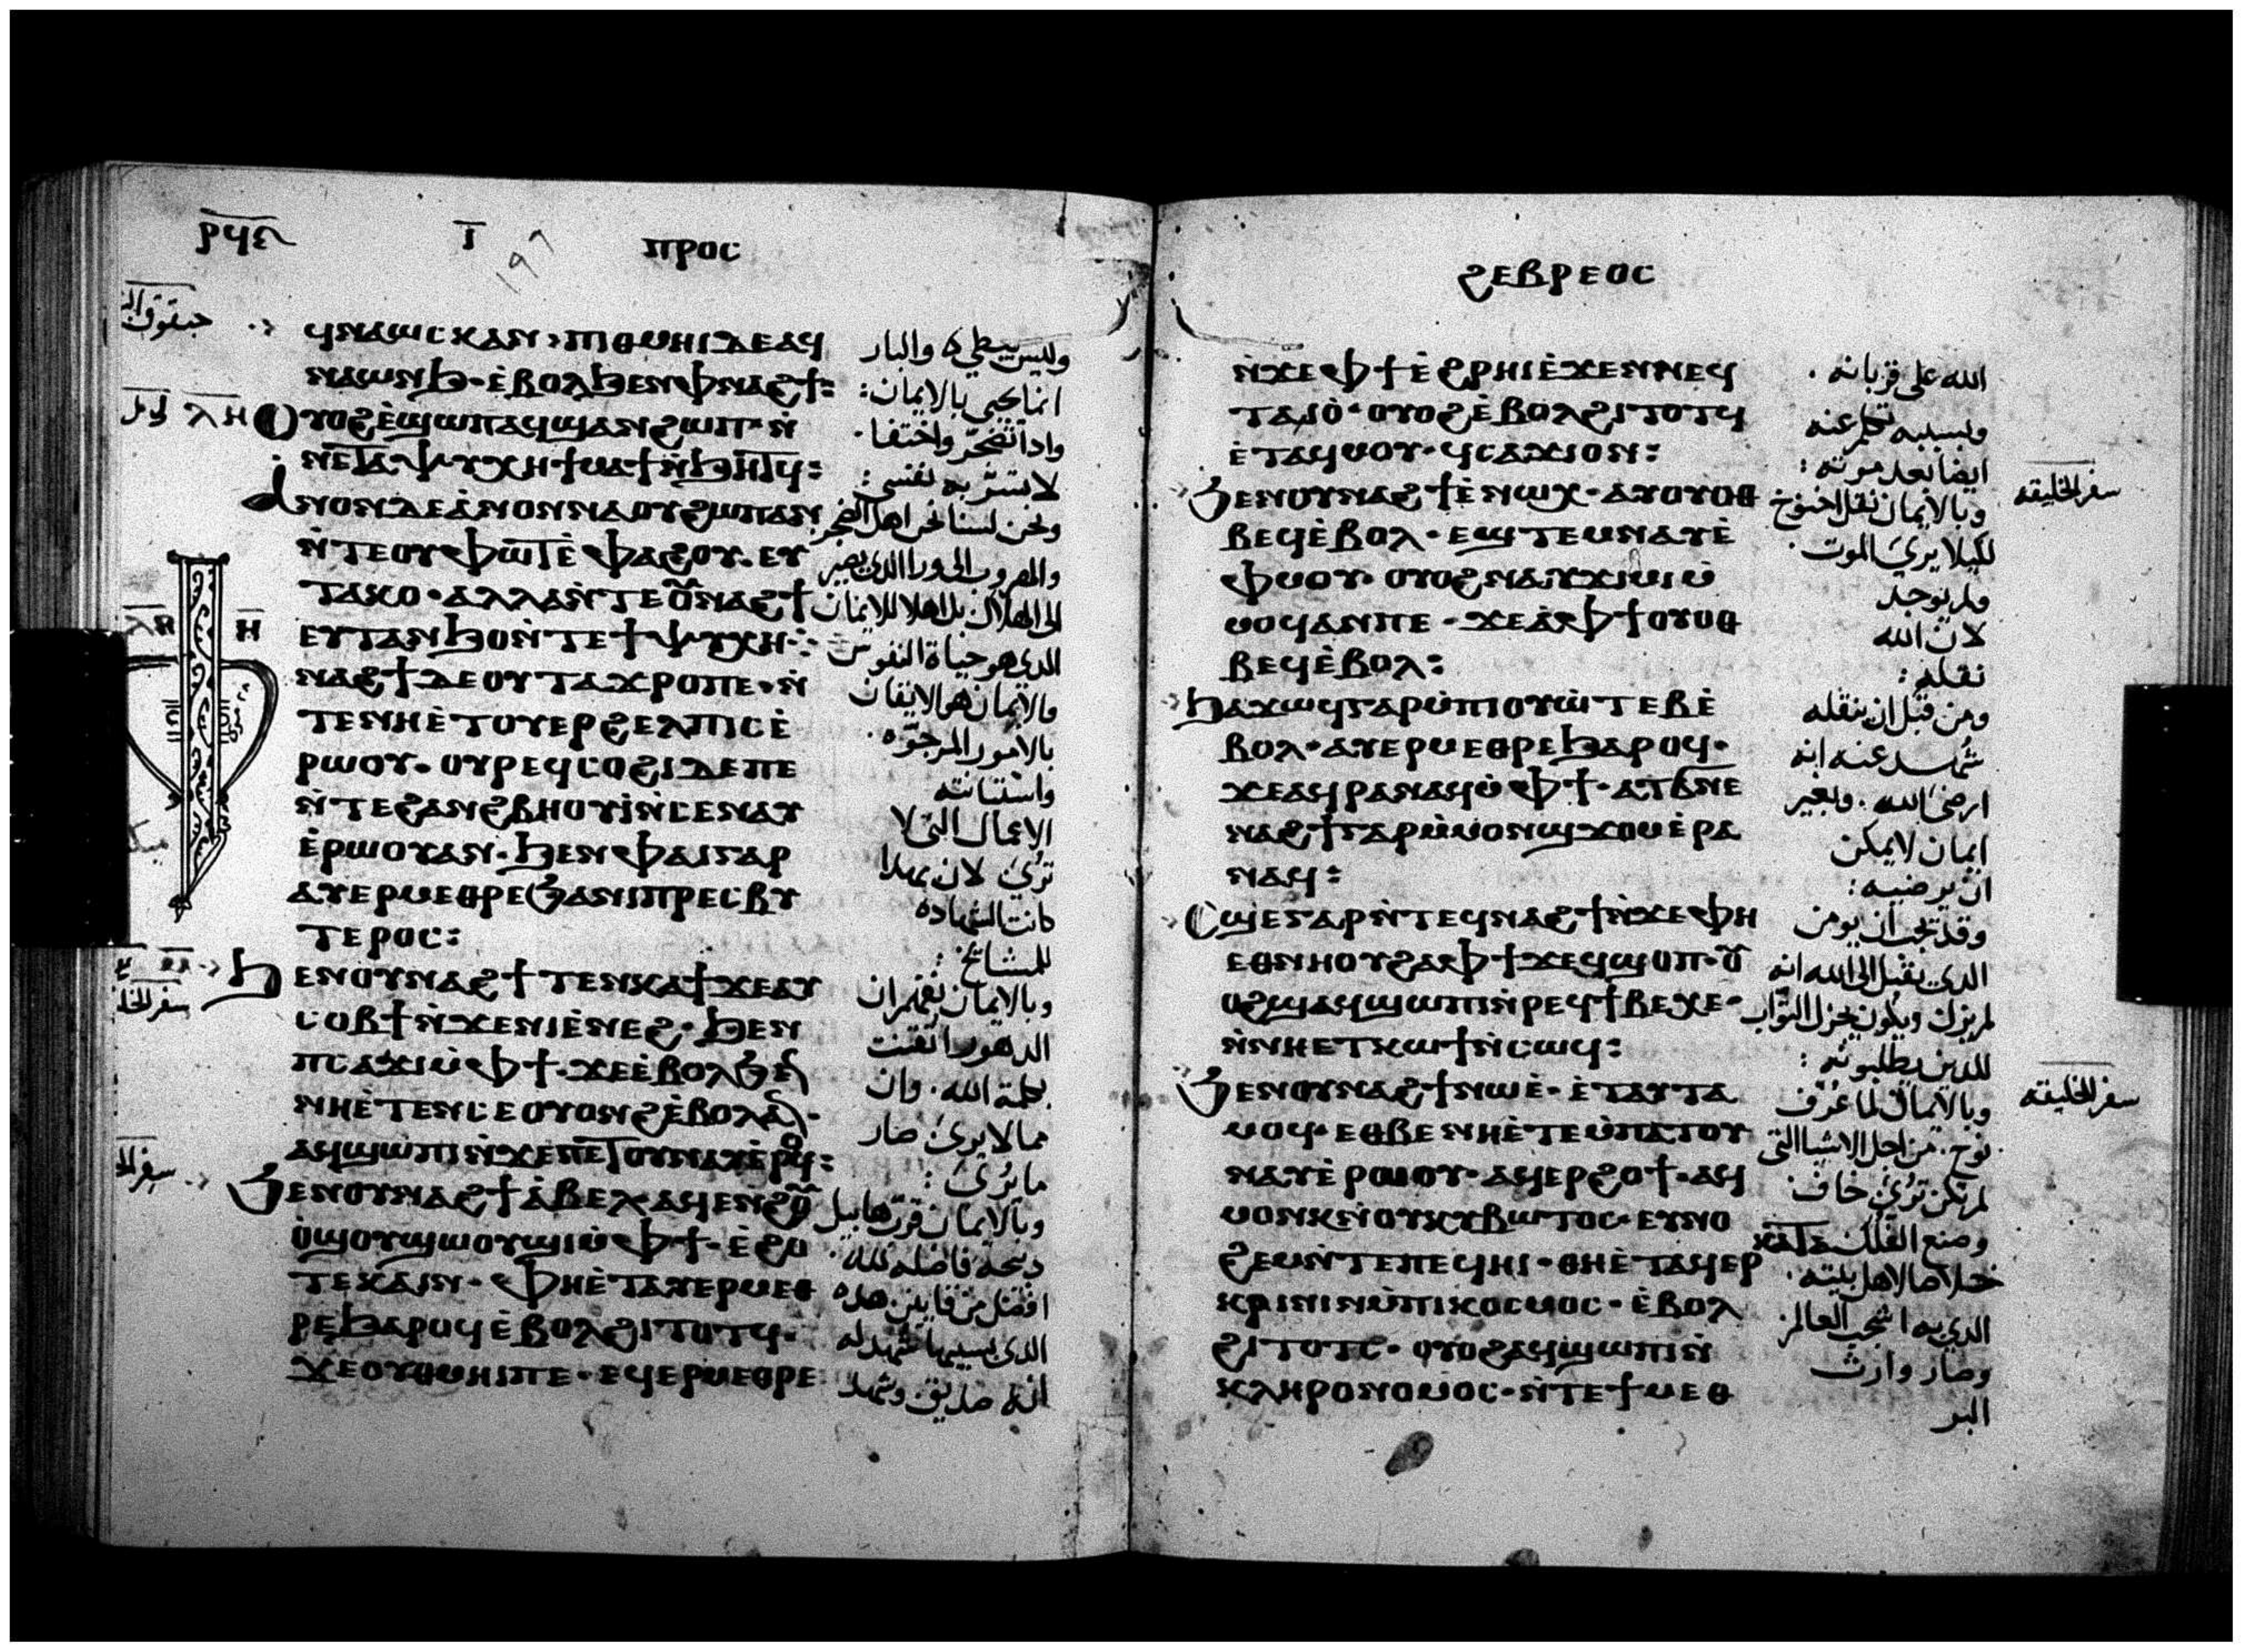 ⲣϥⲍ
ⲓ̅
197
ⲡⲣⲟⲥ
ϥⲛⲁⲱⲥⲕⲁⲛ· ⲡⲓⲑⲙⲏⲓⲇⲉⲁϥ
ⲛⲁⲱⲛϧ· ⲉ̀ⲃⲟⲗϧⲉⲛⲫⲛⲁϩϯ:
ⲟⲩⲟϩⲉ̀ϣⲱⲡⲁϥϣⲁⲛϩⲱⲡ· ⲛ̀
ⲛⲉⲧⲁⲯⲩⲭⲏϯⲙⲁϯⲛ̀ϧⲏⲧϥ:
ⲁⲛⲟⲛⲇⲉⲁ̀ⲛⲟⲛⲛⲁⲟⲩϩⲱⲡⲁⲛ
ⲛ̀ⲧⲉⲟⲩⲫⲱⲧⲉ̀ⲫⲁϩⲟⲩ· ⲉⲩ
ⲧⲁⲕⲟ· ⲁⲗⲗⲁⲛ̀ⲧⲉⲟⲩⲛⲁϩϯ
ⲉⲩⲧⲁⲛϧⲟⲛ̀ⲧⲉϯⲯⲩⲭⲏ:
ⲛⲁϩϯⲇⲉⲟⲩⲧⲁϫⲣⲟⲡⲉ· ⲛ̀
ⲧⲉⲛⲏⲉ̀ⲧⲟⲩⲉⲣϩⲉⲗⲡⲓⲥⲉ̀
ⲣⲱⲟⲩ· ⲟⲩⲣⲉϥⲥⲟϩⲓⲇⲉⲡⲉ
ⲛ̀ⲧⲉϩⲁⲛϩⲃⲏⲟⲩⲓ̀ⲛ̀ⲥⲉⲛⲁⲩ
ⲉ̀ⲣⲱⲟⲩⲁⲛ· ϧⲉⲛⲫⲁⲓⲅⲁⲣ
ⲁⲩⲉⲣⲙⲉⲑⲣⲉϧⲁⲛⲓⲡⲣⲉⲥⲃⲩ
ⲧⲉⲣⲟⲥ:
ϧⲉⲛⲟⲩⲛⲁϩϯⲧⲉⲛⲕⲁϯϫⲉⲁⲩ
ⲥⲟⲃϯⲛ̀ϫⲉⲛⲓⲉ̀ⲛⲉϩ· ϧⲉⲛ
ⲡⲥⲁϫⲓⲙ̀ⲫϯ· ϫⲉⲉ̀ⲃⲟⲗϧⲉⲛ
ⲛⲏⲉ̀ⲧⲉⲛⲥⲉⲟⲩⲟⲛϩⲉ̀ⲃⲟⲗⲁⲛ·
ⲁϥϣⲱⲡⲓⲛ̀ϫⲉⲡⲉⲧⲟⲩⲛⲁⲩⲉ̀ⲣⲟϥ:
ϧⲉⲛⲟⲩⲛⲁϩϯⲁ̀ⲃⲉⲗⲁϥⲉⲛϩⲟⲩ
ⲟ̀ϣⲟⲩϣⲱⲟⲩϣⲓⲙ̀ⲫϯ· ⲉ̀ϩⲟ
ⲧⲉⲕⲁⲓⲛ· ⲫⲏⲉ̀ⲧⲁⲩⲉⲣⲙⲉⲑ
ⲣⲉϧⲁⲣⲟϥⲉ̀ⲃⲟⲗϩⲓⲧⲟⲧϥ·
ϫⲉⲟⲩⲑⲙⲏⲓⲡⲉ· ⲉϥⲉⲣⲙⲉⲑⲣⲉ
وليس يبطي والبار
انما يحيى بالايمان:
واذا تضجر واختفا·
لا تسر به نفسي:
ونحن لسنا نحن اهل الضجر
والهروب الى ورا الذي يصير
الى الهلاك بل اهلا للايمان
الذي هو حياة النفوس
والايمان هو الايقان
بالامور المرجوه·
واستبانته
الاعمال التي لا
ترى لان بهدا
كانت الشهاده
للمشايخ:
وبالايمان نفهم ان
الدهور اتقنت
بكلمة الله· وان
مما لا يرى صار
ما يرى:
وبالايمان قرب هابيل
ذبيحة فاضله لله·
افضل من قايين هده
الذي بسببها شهد له
انه صديق وشهد
حبقوق
ⲗⲏ
ⲏ̅
ϩⲉⲃⲣⲉⲟⲥ
ⲛ̀ϫⲉⲫϯⲉ̀ϩⲣⲏⲓⲉ̀ϫⲉⲛⲛⲉϥ
ⲧⲁⲓⲟ̀· ⲟⲩⲟϩⲉ̀ⲃⲟⲗϩⲓⲧⲟⲧϥ
ⲉ̀ⲧⲁϥⲙⲟⲩ· ϥⲥⲁϫⲓⲟⲛ:
ϧⲉⲛⲟⲩⲛⲁϩϯⲉ̀ⲛⲱⲭ· ⲁⲩⲟⲩⲟⲑ
ⲃⲉϥⲉ̀ⲃⲟⲗ· ⲉϣⲧⲉⲙⲛⲁⲩⲉ̀
ⲫⲙⲟⲩ· ⲟⲩⲟϩⲛⲁⲩϫⲓⲙⲓⲙ̀
ⲙⲟϥⲁⲛⲡⲉ· ϫⲉⲁ̀ⲫϯⲟⲩⲟⲑ
ⲃⲉϥⲉ̀ⲃⲟⲗ:
ϧⲁϫⲱϥⲅⲁⲣⲙ̀ⲡⲓⲟⲩⲱ̀ⲧⲉⲃⲉ̀
ⲃⲟⲗ· ⲁⲩⲉⲣⲙⲉⲑⲣⲉϧⲁⲣⲟϥ·
ϫⲉⲁϥⲣⲁⲛⲁϥⲙ̀ⲫϯ· ⲁⲧϭⲛⲉ
ⲛⲁϩϯⲅⲁⲣⲙ̀ⲙⲟⲛϣϫⲟⲙⲉ̀ⲣⲁ
ⲛⲁϥ:
ⲥϣⲉⲅⲁⲣⲛ̀ⲧⲉϥⲛⲁϩϯⲛ̀ϫⲉⲫⲏ
ⲉⲑⲛⲏⲟⲩϩⲁⲫϯϫⲉϥϣⲟⲡ· ⲟⲩ
ⲟϩϣⲁϥϣⲱⲡⲓⲛ̀ⲣⲉϥϯⲃⲉⲭⲉ·
ⲛ̀ⲛⲏⲉⲧⲕⲱϯⲛ̀ⲥⲱϥ:
ϧⲉⲛⲟⲩⲛⲁϩϯⲛⲱⲉ̀· ⲉ̀ⲧⲁⲩⲧⲁ
ⲙⲟϥ· ⲉⲑⲃⲉⲛⲏⲉ̀ⲧⲉⲙ̀ⲡⲁⲧⲟⲩ
ⲛⲁⲩⲉ̀ⲣⲱⲟⲩ· ⲁϥⲉⲣϩⲟϯ· ⲁϥ
ⲙⲟⲛⲕⲛ̀ⲟⲩⲕⲩⲃⲱⲧⲟⲥ· ⲉⲩⲛⲟ
ϩⲉⲙⲛ̀ⲧⲉⲡⲉϥⲏⲓ· ⲑⲏⲉ̀ⲧⲁϥⲉⲣ
ⲕⲣⲓⲛⲓⲛⲙ̀ⲡⲓⲕⲟⲥⲙⲟⲥ· ⲉ̀ⲃⲟⲗ
ϩⲓⲧⲟⲧⲥ· ⲟⲩⲟϩⲁϥϣⲱⲡⲓⲛ̀
ⲕⲗⲏⲣⲟⲛⲟⲙⲟⲥ· ⲛ̀ⲧⲉϯⲙⲉⲑ
الله على قربانه·
وبسببه تكلم عنه
ايضا بعد موته:
وبالايمان نقل اخنوخ
لكيلا يرى الموت·
ولم يوجد
لان الله
نقله:
ومن قبل ان ينقله
شهد عنه انه
ارضى الله· وبغير
ايمان لا يمكن
ان يرضيه:
وقد يجب ان يومن
الذي يقبل الى الله انه
لم يزل ويكون يجزل الثواب
للذين يطلبونه:
وبالايمان لما عرف
نوح· من اجل الاشيا التي
لم تكن ترى خاف
وصنع الفلك
خلاصا لاهل بيته·
الذي به اشجب العالم
وصار وارث
البر
سفر الخليقه
سفر الخليقه